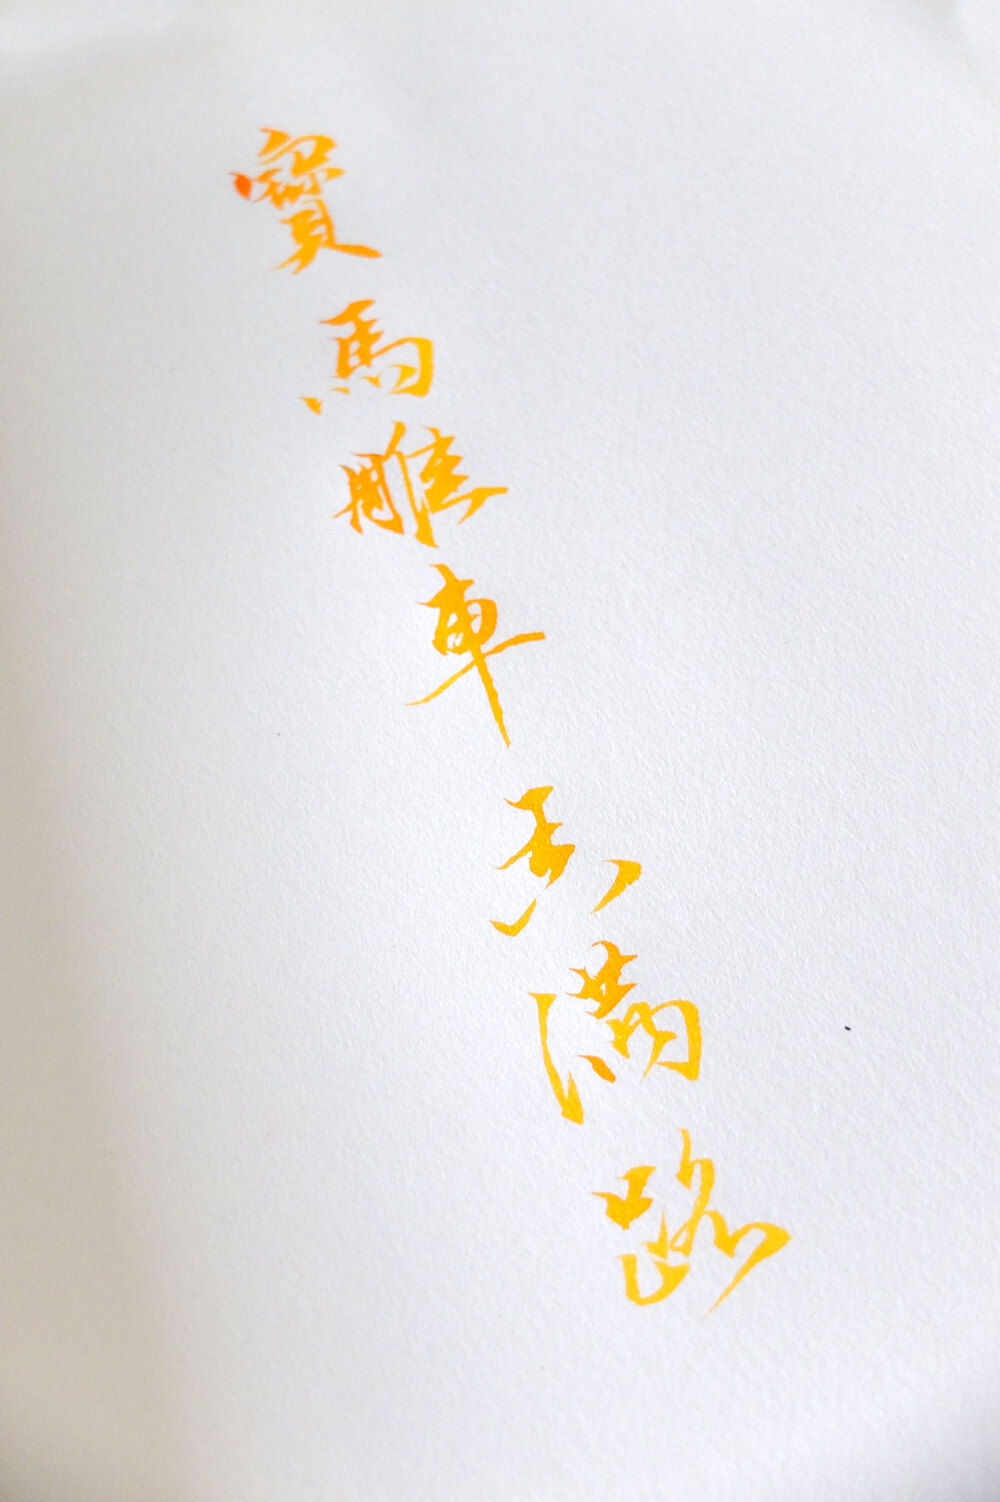 寶馬雕車香滿路